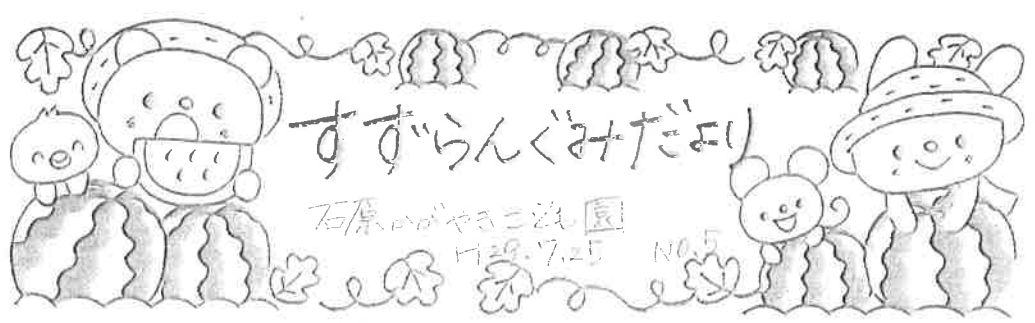 すずらんぐみだより
石原かがやきこども園
H29.7.25 NO.5